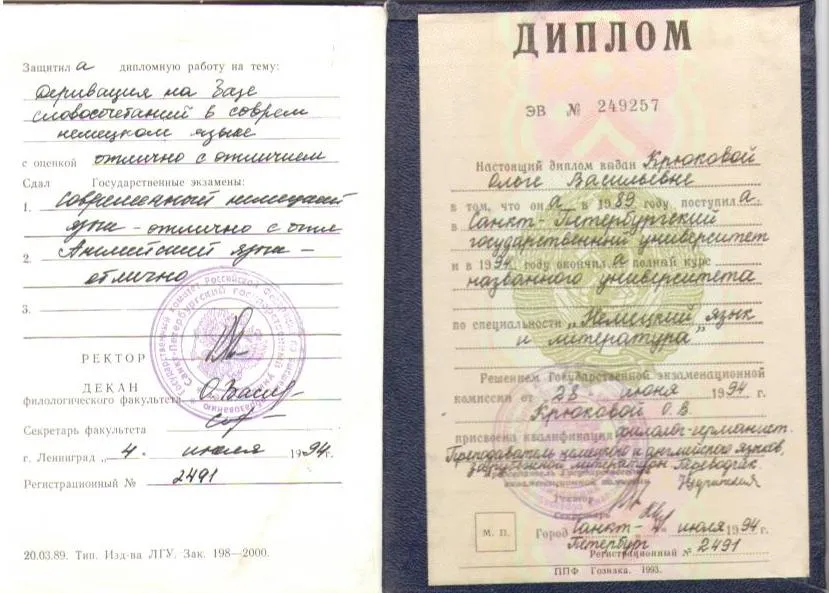 Защитила дипломную работу на тему:
Деривация на базе
словосочетаний в соврем
немецком языке
с оценкой отлично с отличием
Сдал Государственные экзамены:
1. Современный немецкий
язык - отлично с отли
2. Английский язык -
отлично
3.
РЕКТОР
ДЕКАН
филологического факультета
Секретарь факультета
г. Ленинград „4. июля 1994г.
Регистрационный № 2491
20.03.89. Тип. Изд-ва ЛГУ. Зак. 198—2000.
ДИПЛОМ
ЭВ № 249257
Настоящий диплом выдан Крюковой
Ольге Васильевне
в том, что она в 1989 году поступила
в Санкт-Петербургский
государственный университет
и в 1994 году окончила полный курс
названного университета
по специальности „Немецкий язык
и литература"
Решением Государственной экзаменационной
комиссии от 28 июня 1994 г.
Крюковой О.В.
присвоена квалификация филолог-германист.
Преподаватель немецкого и английского языков,
зарубежной литературы. Переводчик.
Ректор
Секретарь
М. П.
Город Санкт- 4 июля 1994
Петербург
Регистрационный № 2491
ППФ Гознака. 1993.